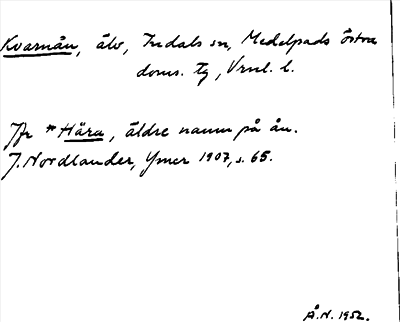 Kvarnån, älv, Indals sn, Medelpads östra
doms. tg, Vrnl. l.
Jfr *Hära, äldre namn på ån.
J. Nordlander, Ymer 1907, s. 65.
Å.N. 1952.